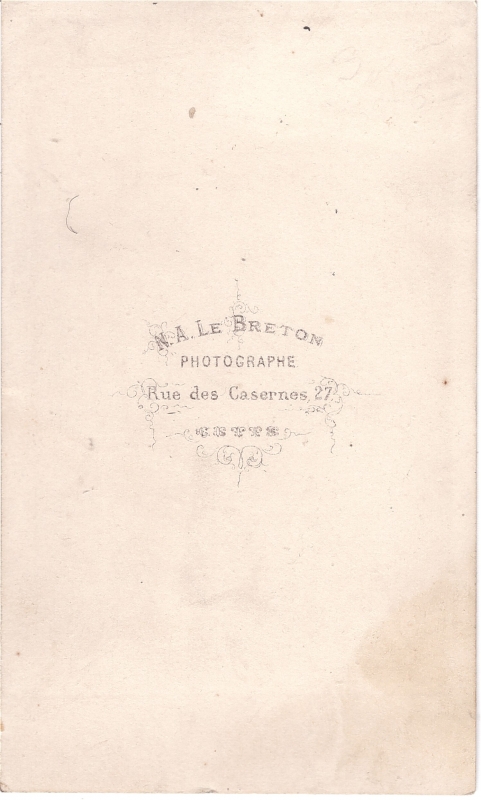 N. A. LE BRETON
PHOTOGRAPHE
Rue des Casernes, 27
CETTE